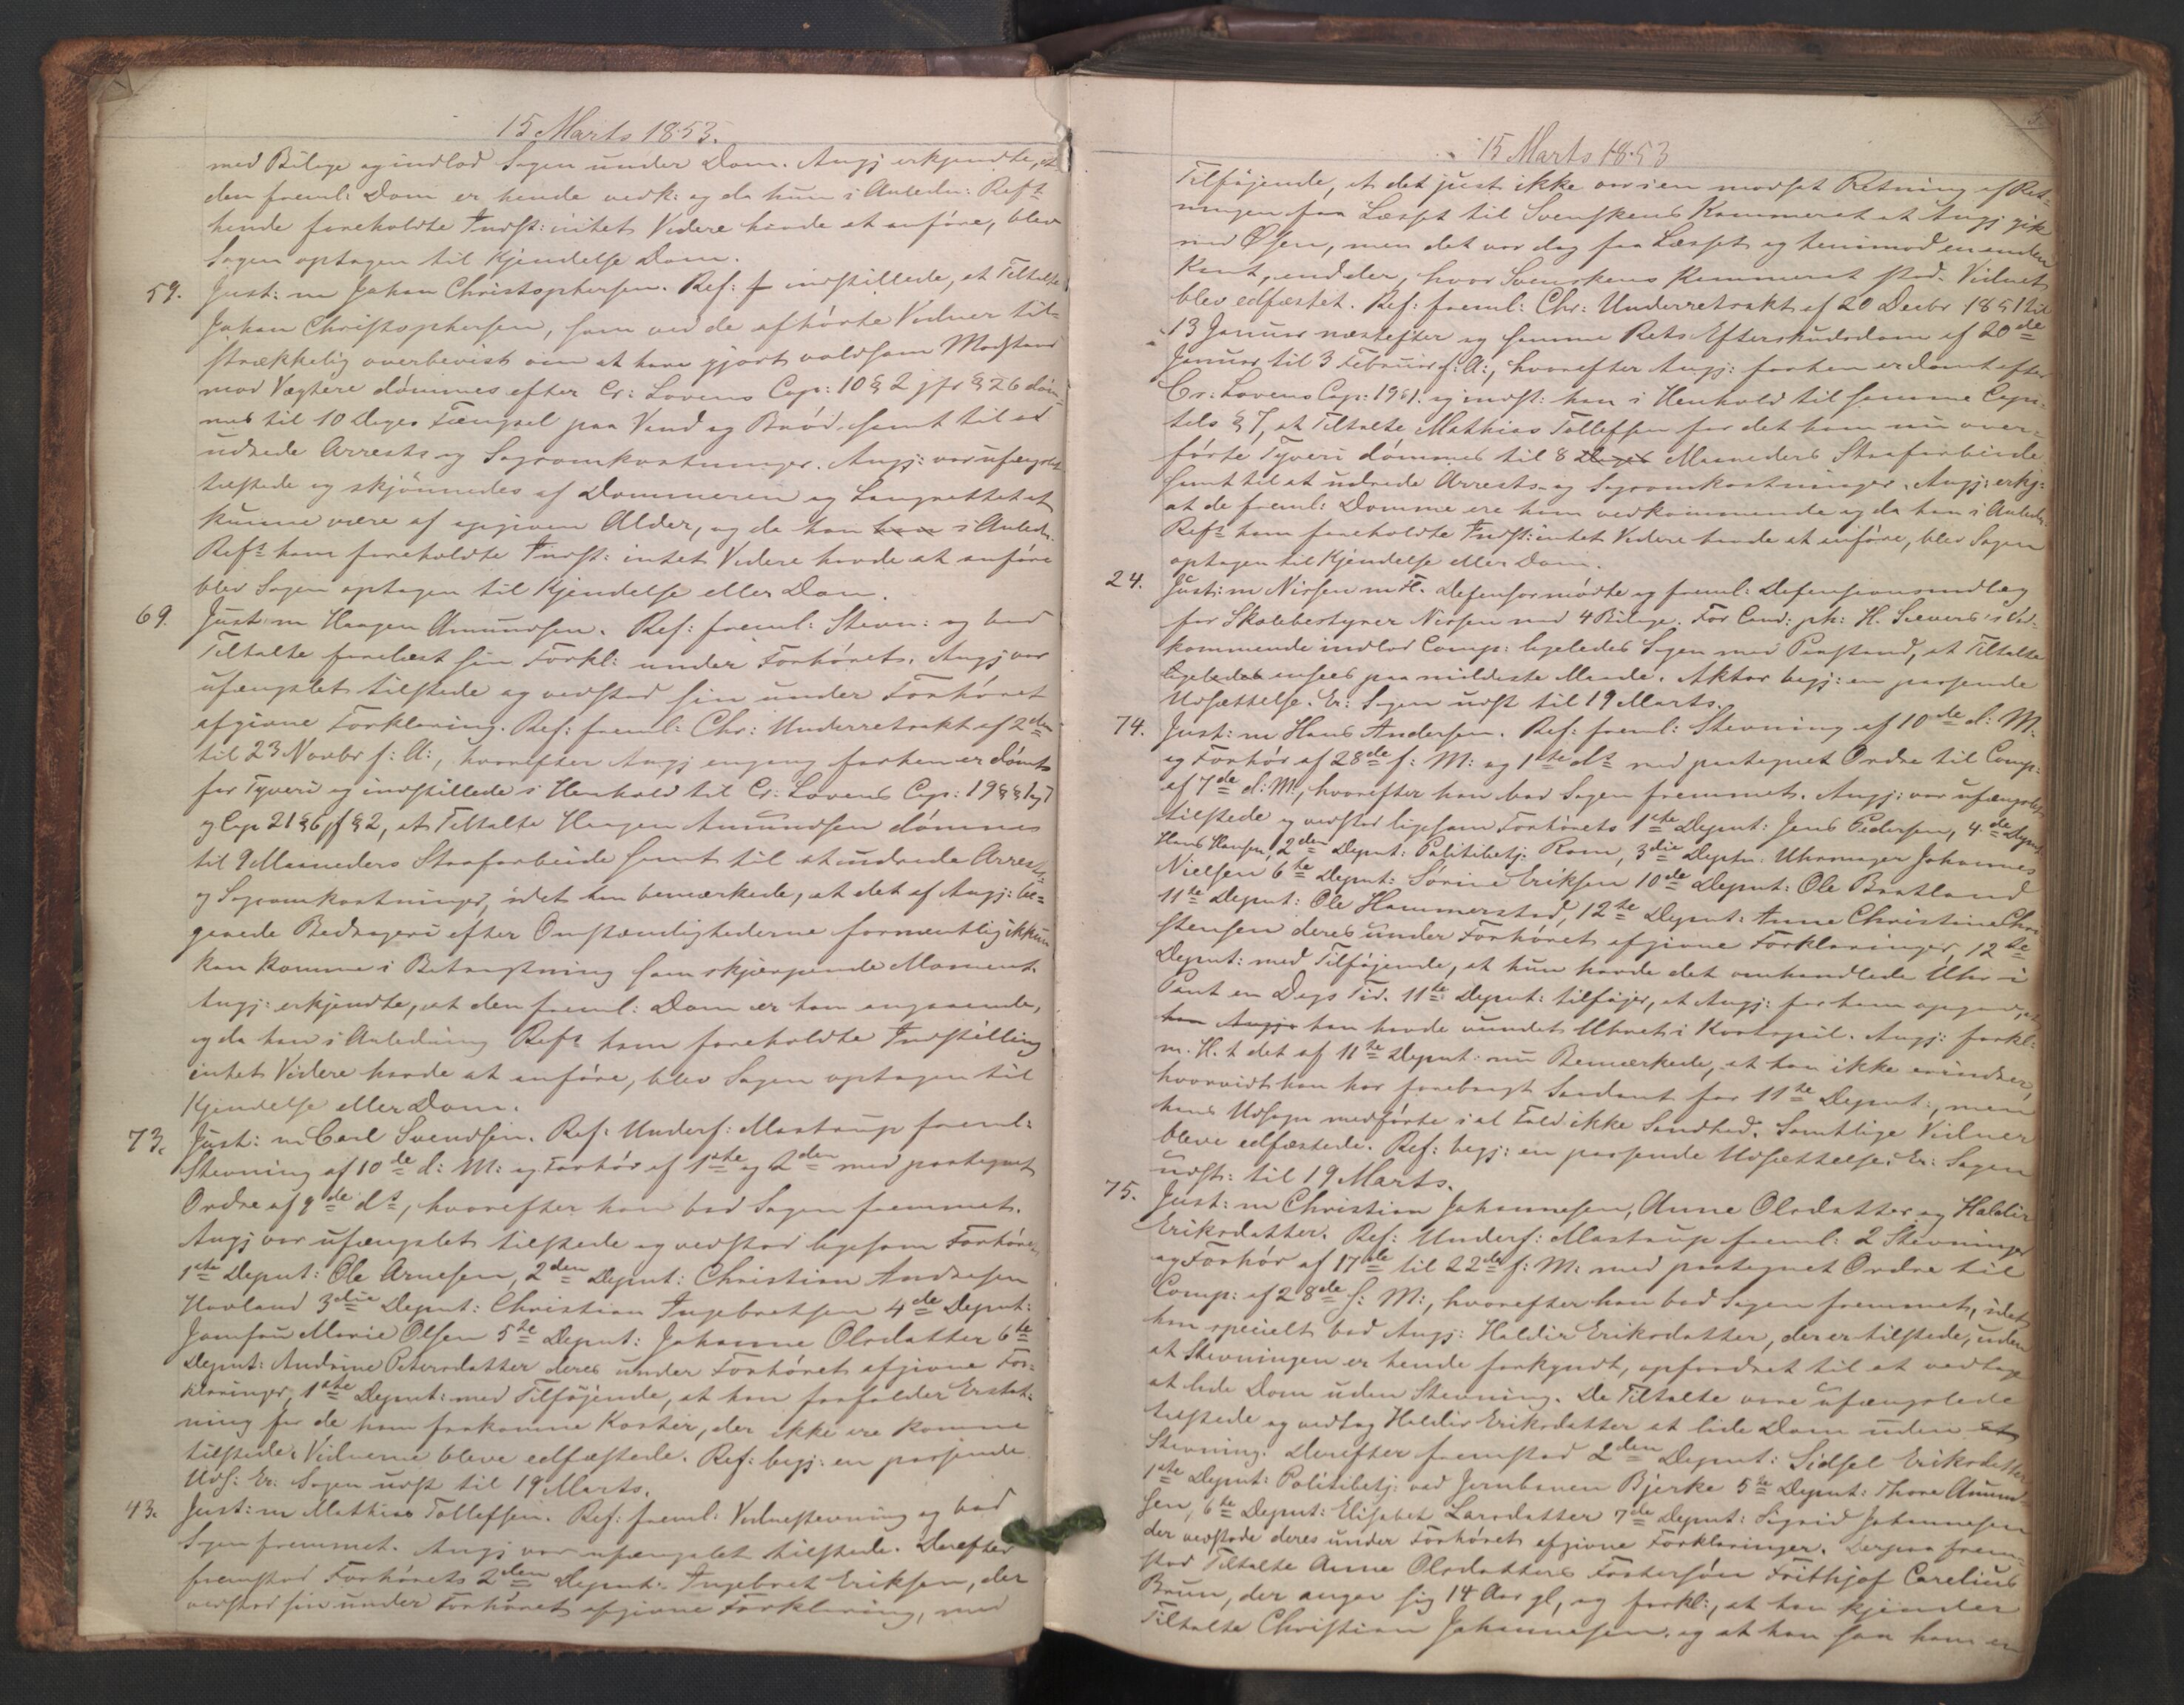 15 Marts 1853.
med Bilage og indlod Sagen under Dom. Angj erkjendte, at
den freml: Dom er hende vedk: og da hun i Anledn: Refts
hende foreholdte Indst: intet Videre havde at anføre, blev
Sagen optagen til Kjendelse Dom.
59. Just: m Johan Christophersen. Ref: indstillede, at Tiltalte
Johan Christophersen, som ved de afhørte Vidner til-
strækkelig overbevist om at have gjort voldsom Modstand
mod Vægtere dømmes efter Cr: Lovens Cap: 10 § 2 jfr § 26 døm-
mes til 10 Dages Fængsel paa Vand og Brød samt til at
udrede Arrests og Sagsomkostninger. Angj: var ufængslet
tilstede og skjønnedes af Dommeren og Laugrettet at
kunne være af opgiven Alder, og da han ham i Anledn:
Refts ham foreholdte Indst: intet Videre havde at anføre
blev Sagen optagen til Kjendelse eller Dom.
69. Just: m Haagen Amundsen. Ref: freml: Stevn: og bad
Tiltalte forelæst sin Forkl: under Forhøret. Angj var
ufængslet tilstede og vedstod sin under Forhøret
afgivne Forklaring. Ref: freml: Chr: Underretsakt af 2den
til 23 Novbr f: A:, hvorefter Angj engang forhen er dømt
for Tyveri og indstillede i Henhold til Cr: Lovens Cap: 19 §§ 1 og 7
og Cap 21 § 6 jf § 2, at Tiltalte Haagen Amundsen dømmes
til 9 Maaneders Strafarbeide samt til at udrede Arrests
og Sagsomkostninger, idet han bemærkede, at det af Angj: be-
gaaede Bedrageri efter Omstændighederne formentlig ikkun
kan komme i Betragtning som skjærpende Moment.
Angj: erkjendte, at den freml: Dom er ham angaaende,
og da han i Anledning Refts ham foreholdte Indstilling
intet Videre havde at anføre, blev Sagen optagen til
Kjendelse eller Dom.
73. Just: m Carl Svendsen. Ref: Underf: Mastrup freml:
Stevning af 10de d: M: og Forhør af 1ste og 2den med paategnet
Ordre af 9de ds, hvorefter han bad Sagen fremmet.
Angj var ufængslet tilstede og vedstod ligesom Forhørets
1ste Deput: Ole Arnesen, 2den Deput: Christian Andresen
Hovland 3die Deput: Christian Ingebretsen 4de Deput:
Jomfru Marie Olsen 5te Deput: Johanne Olsdatter 6te
Deput: Andrine Petersdatter deres under Forhøret afgivne For-
klaringer, 1ste Deput: med Tilføjende, at han frafalder Erstat-
ning for de ham frakomne Koster, der ikke ere komne
tilstede. Vidnerne bleve edfæstede. Ref: begj: en passende
Uds: Er: Sagen udst til 19 Marts.
43. Just: m Mathias Tollefsen. Ref: freml: Vidnestevning og bad
Sagen fremmet. Angj var ufængslet tilstede. Derefter
fremstod Forhørets 2den Deput: Ingebret Eriksen, der
vedstod sin under Forhøret afgivne Forklaring, med
15 Marts 1853
Tilføjende, at det just ikke var i en modsat Retning af Ret-
ningen fra Læsset til Svenskens Kammerat at Angj: gik
med Øsen, men det var dog fra Læsset og henimod en anden
Kant, end der, hvor Svenskens Kammerat stod. Vidnet
blev edfæstet. Ref: freml: Chr: Underretsakt af 20 Decbr 1851 til
13 Januar næstefter og samme Rets Efterskudsdom af 20de
Januar til 3 Februar f: A:, hvorefter Angj: forhen er dømt efter
Cr: Lovens Cap: 19 § 1. og indst: han i Henhold til samme Capi-
tels § 7, at Tiltalte Mathias Tollefsen for det ham nu over-
førte Tyveri dømmes til 8 Dages Maaneders Strafarbeide
samt til at udrede Arrests- og Sagsomkostninger. Angj: erkj:
at de freml: Domme ere ham vedkommende og da han i Anledn:
Refts ham foreholdte Indst: intet Videre havde at anføre, blev Sagen
optagen til Kjendelse eller Dom.
24. Just: m Nissen m Fl. Defensor mødte og freml: Defensionsindlæg
for Skolebestyrer Nissen med 4 Bilage. For Cand: ph: H. Sievers's Ved-
kommende indlod Comp: ligeledes Sagen med Paastand, at Tiltalte
ligeledes ansees paa mildeste Maade. Aktor begj: en passende
Udsættelse. Er: Sagen udst til 19 Marts.
74. Just: m Hans Andersen. Ref: freml: Stevning af 10de d: M:
og Forhør af 28de f: M: og 1ste ds med paategnet Ordre til Comp:
af 7de d: M:, hvorefter han bad Sagen fremmet. Angj: var ufængslet
tilstede og vedstod ligesom Forhørets 1ste Deput: Jens Pedersen, 4de Deput:
Hans Hansen, 2den Deput: Politibetj: Ram, 3die Deput: Uhrmager Johannes
Nielsen 6te Deput: Sørine Eriksen 10de Deput: Ole Braatland
11te Deput: Ole Hammerstad, 12te Deput: Anne Christine Chri-
stensen deres under Forhøret afgivne Forklaringer, 12te
Deput: med Tilføjende, at hun havde det omhandlede Uhr i
Pant en Dags Tid. 11te Deput: tilføjer, at Angj: for ham opgav, at
han Angj: han havde vundet Uhret i Kortspil. Angj: forkl:
m. H. t det af 11te Deput: nu Bemærkede, at han ikke erindrer,
hvorvidt han har forebragt Saadant for 11te Deput:, men
hans Udsagn medførte i al Fald ikke Sandhed. Samtlige Vidner
bleve edfæstede. Ref: begj: en passende Udsættelse. Er: Sagen
udst: til 19 Marts.
75. Just: m Christian Johannesen, Anne Olsdatter og Haldis
Eriksdatter. Ref: Underf: Mastrup freml: 2 Stevninger
og Forhør af 17de til 22de f: M: med paategnet Ordre til
Comp: af 28de f: M:, hvorefter han bad Sagen fremmet, idet
han specielt bad Angj: Haldis Eriksdatter, der er tilstede, uden
at Stevningen er hende forkyndt, opfordret til at vedtage
at lide Dom uden Stevning. De Tiltalte vare ufængslede
tilstede og vedtog Haldis Eriksdatter at lide Dom uden at
Stevning. Derefter fremstod 2den Deput: Sidsel Eriksdatter
1ste Deput: Politibetj: ved Jernbanen Bjerke 5te Deput: Thore Amund-
sen, 6te Deput: Elisabet Larsdatter 7de Deput: Sigrid Johannesen
der vedstode deres under Forhøret afgivne Forklaringer. Derpaa frem-
stod Tiltalte Anne Olsdatters Fostersøn Frithjof Carelius
Bruun, der angav sig 14 Aar gl, og forkl:, at han kjender
Tiltalte Christian Johannesen, og at han saa ham en